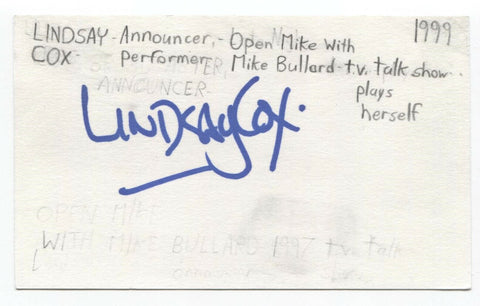 LINDSAY - Announcer, - Open Mike With 1999
COX - performer, Mike Bullard - t.v. talk show.
ANNOUNCER plays
herself
LINDSAY COX.
OPEN MIKE
WITH MIKE BULLARD 1997 t.v. talk